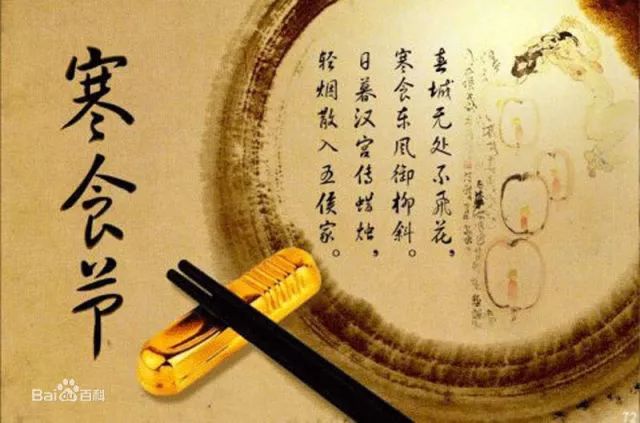 寒食节
春城无处不飞花，
寒食东风御柳斜。
日暮汉宫传蜡烛，
轻烟散入五侯家。
Baidu百科
72